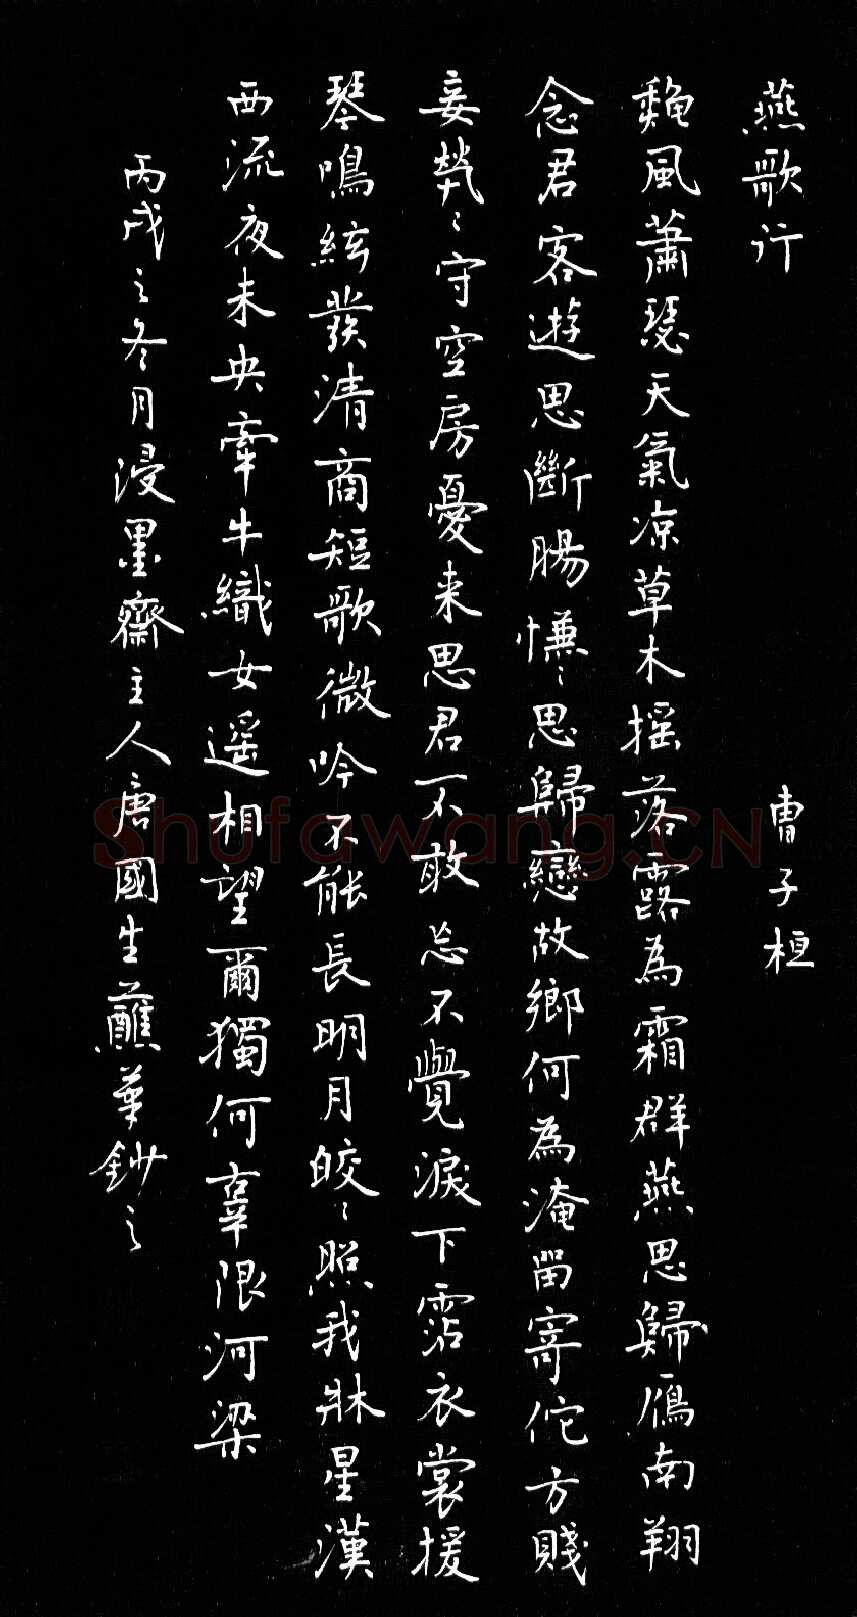 燕歌行
曹子桓
秋風蕭瑟天氣凉草木摇落露為霜群燕思歸雁南翔
念君客遊思斷腸慊〻思歸戀故鄉何為淹留寄佗方賤
妾煢〻守空房憂来思君不敢忘不覺淚下霑衣裳援
琴鳴絃發清商短歌微吟不能長明月皎〻照我牀星漢
西流夜未央牽牛織女遥相望爾獨何辜限河梁
丙戌之冬月浸墨齋主人唐國生蘸華鈔之
Shufawang.CN